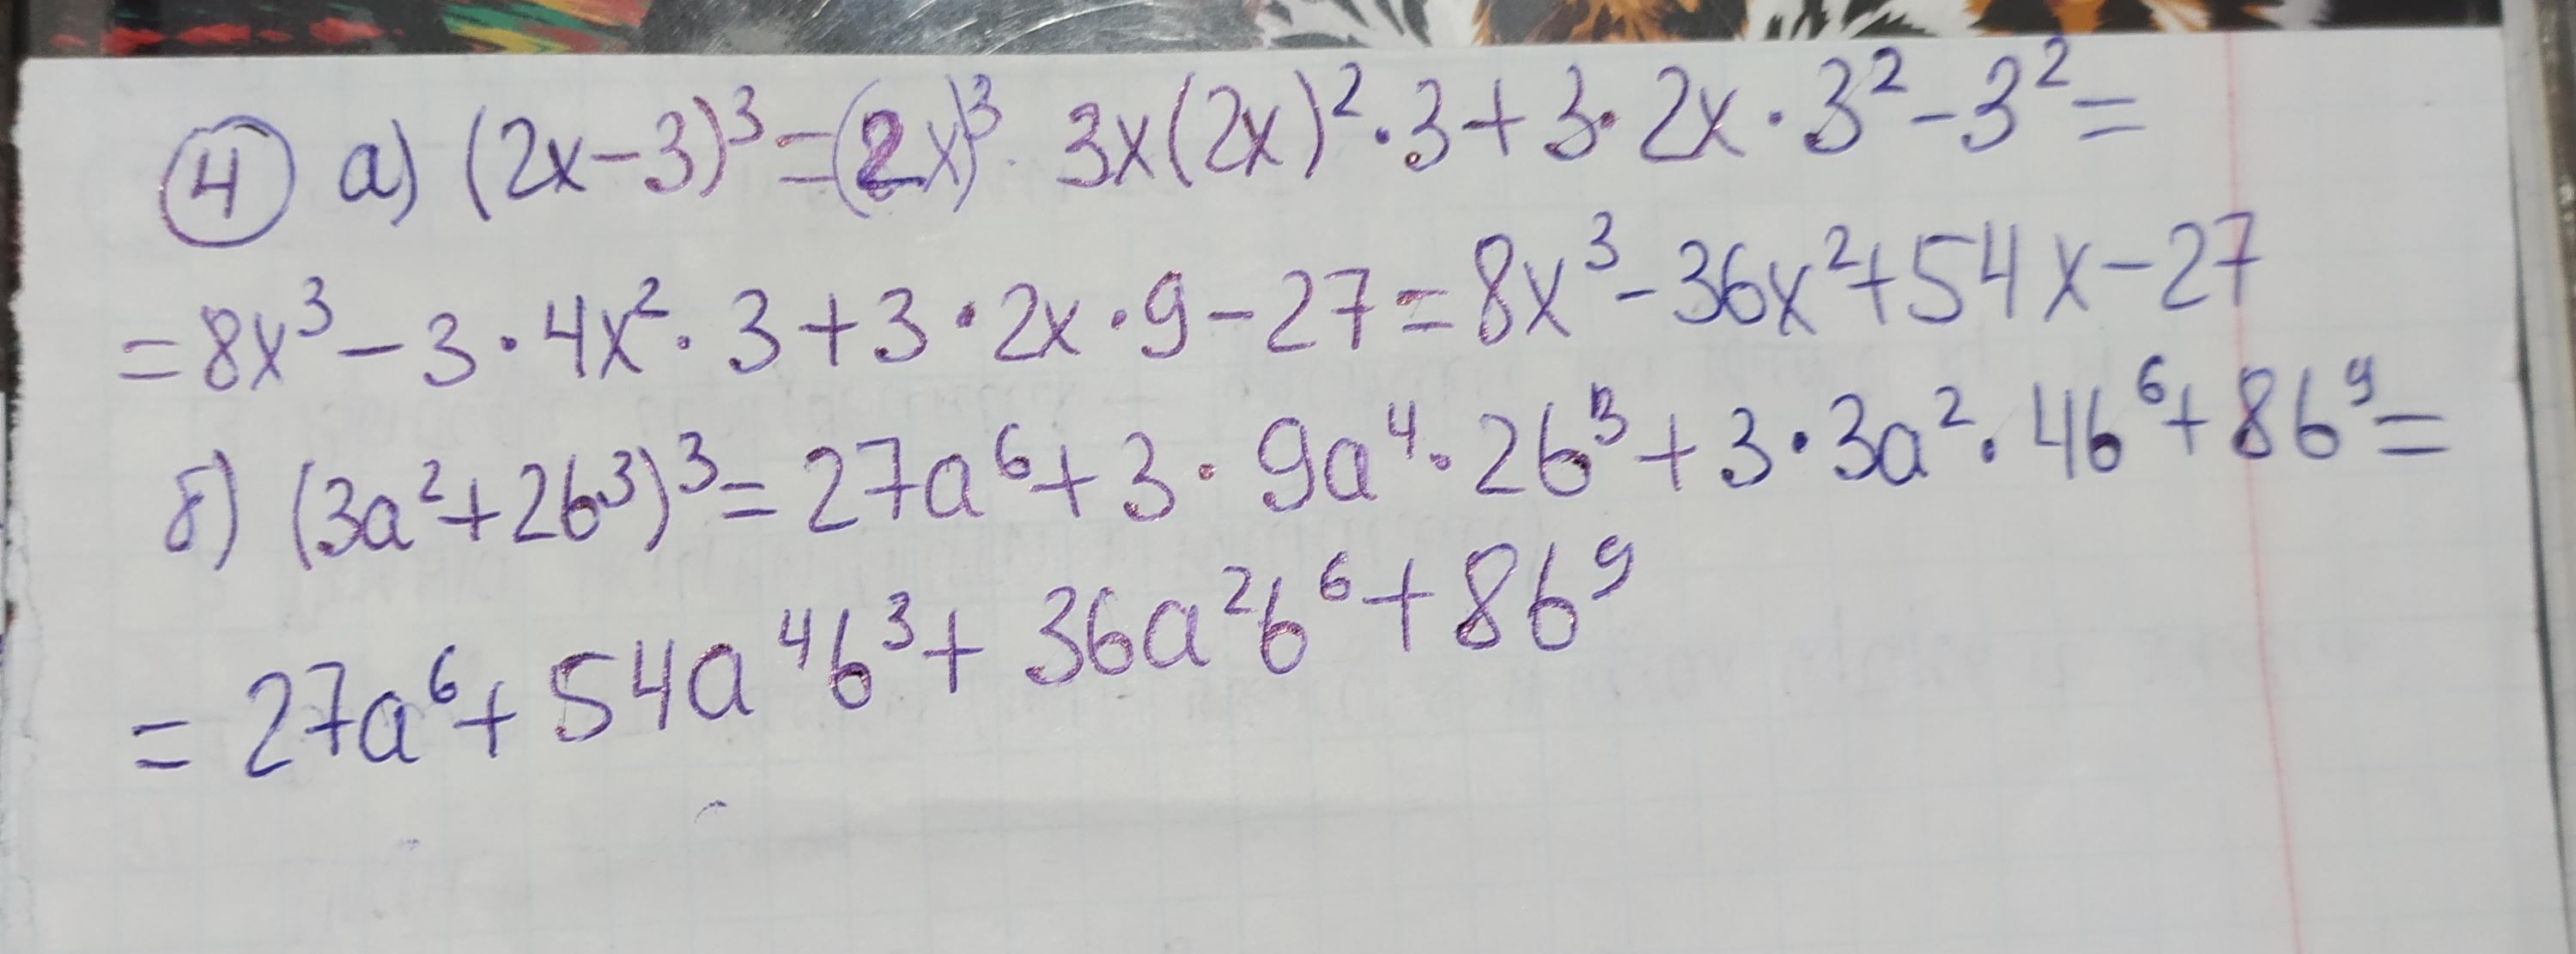 ④ а) (2x-3)³=(2x)³· 3x(2x)²·3+3·2x·3²-3²=
=8x³-3·4x²·3+3·2x·9-27=8x³-36x²+54x-27
б) (3a²+2b³)³=27a⁶+3·9a⁴·2b³+3·3a²·4b⁶+8b⁹=
=27a⁶+54a⁴b³+36a²b⁶+8b⁹